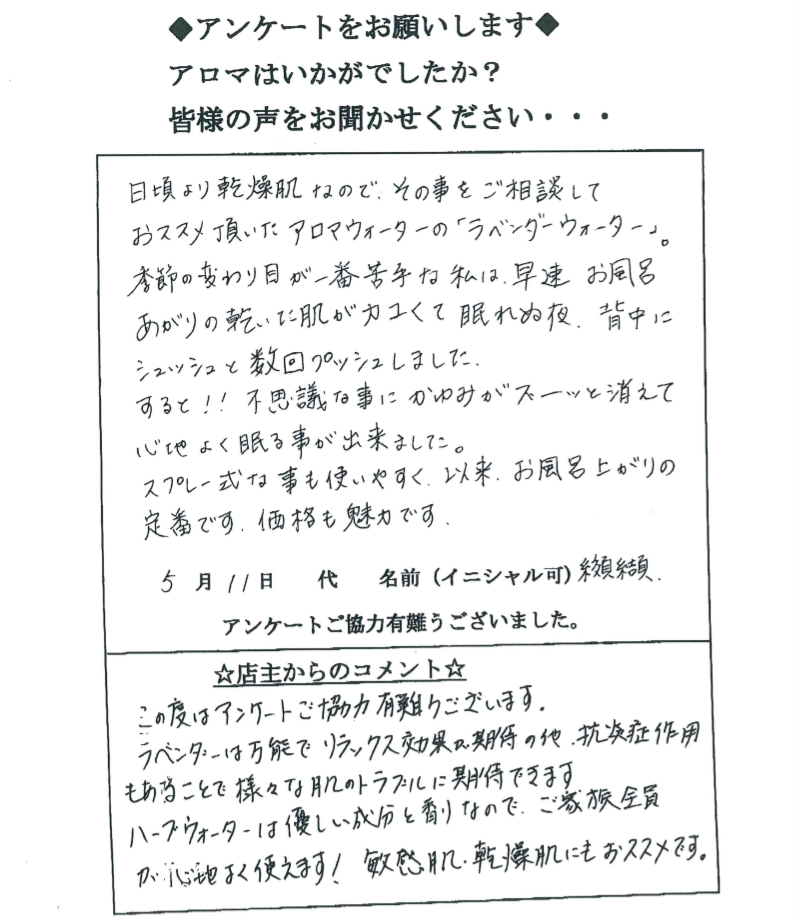 ◆アンケートをお願いします◆
アロマはいかがでしたか？
皆様の声をお聞かせください・・・
日頃より乾燥肌なので、その事をご相談して
おススメ頂いたアロマウォーターの「ラベンダーウォーター」。
季節の変わり目が一番苦手な私は、早速 お風呂
あがりの乾いた肌がカユくて眠れぬ夜、背中に
シュッシュと数回プッシュしました。
すると!! 不思議な事にかゆみがズーッと消えて
心地よく眠る事が出来ました。
スプレー式な事も使いやすく、以来、お風呂上がりの
定番です。価格も魅力です。
5月11日 代 名前（イニシャル可）纐纈
アンケートご協力有難うございました。
☆店主からのコメント☆
この度はアンケートご協力有難うございます。
ラベンダーは万能でリラックス効果が期待の他、抗炎症作用
もあることで様々な肌のトラブルに期待できます
ハーブウォーターは優しい成分と香りなので、ご家族全員
が心地よく使えます! 敏感肌・乾燥肌にもおススメです。